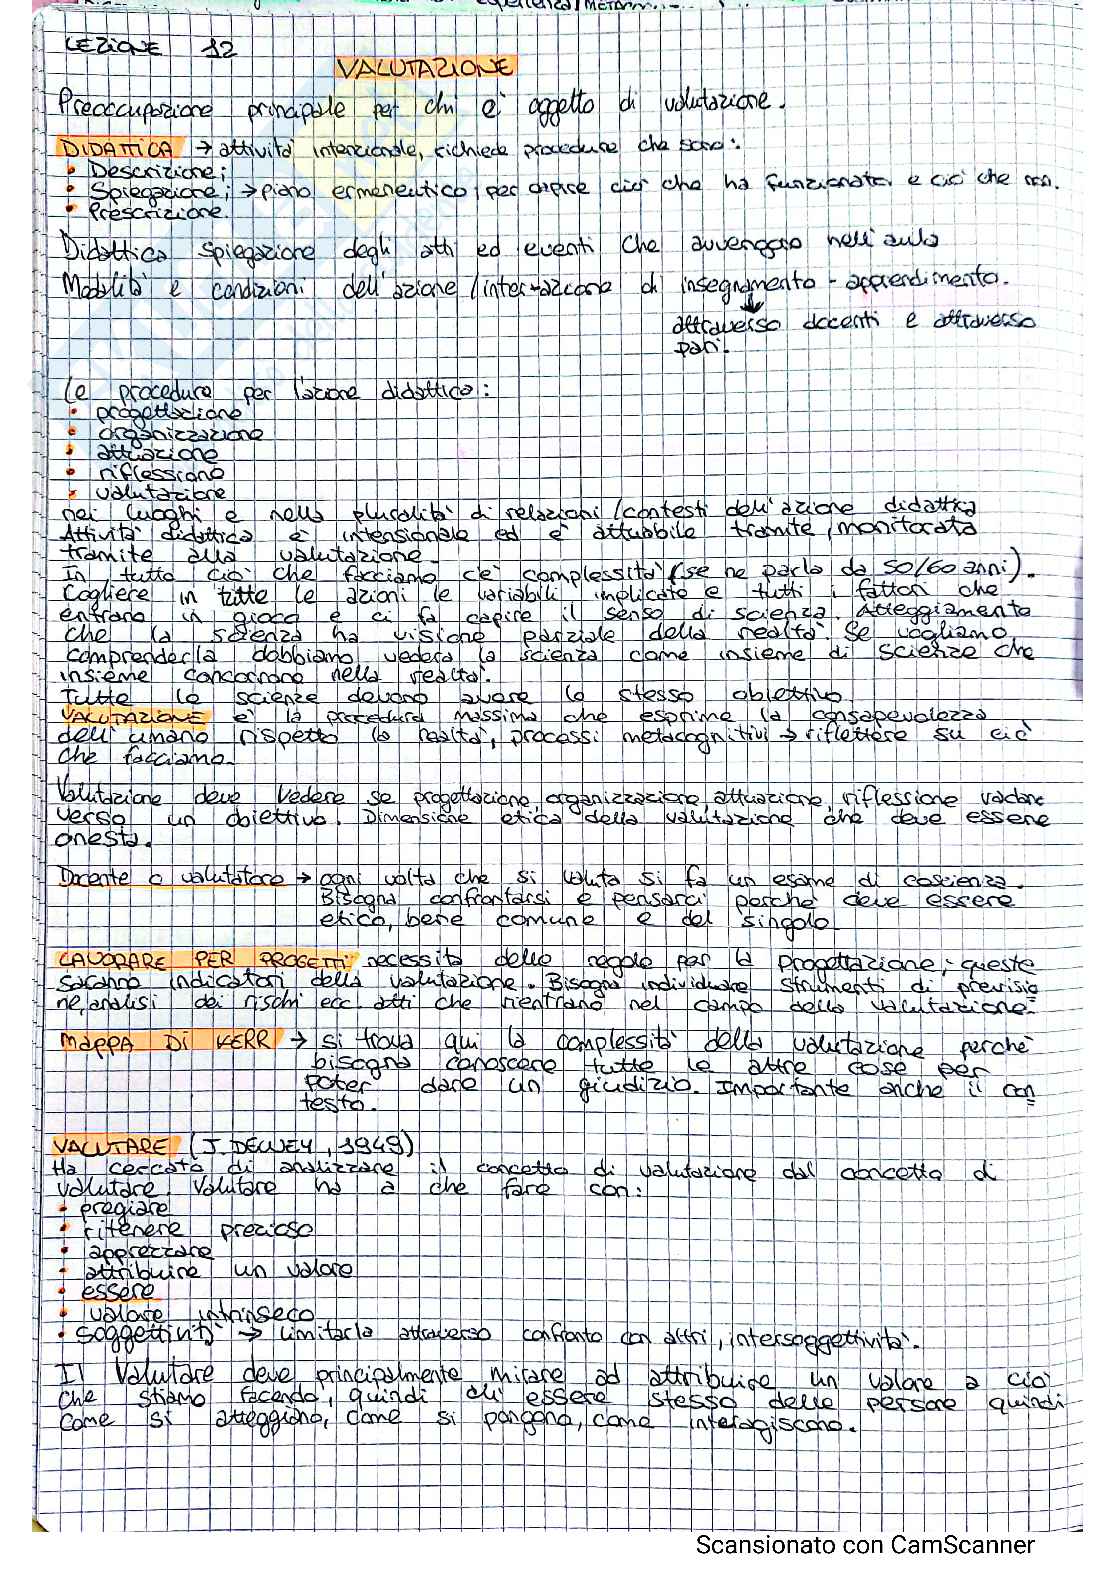 LEZIONE 12
VALUTAZIONE
Preoccupazione principale per chi è oggetto di valutazione.
DIDATTICA → attività intenzionale, richiede procedure che sono:
• Descrizione;
• Spiegazione; → piano ermeneutico, per capire ciò che ha funzionato e ciò che non.
• Prescrizione.
Didattica spiegazione degli atti ed eventi che avvengono nell'aula
Modalità e condizioni dell'azione/inter-azione di insegnamento - apprendimento.
attraverso docenti e attraverso
pari.
Le procedure per l'azione didattica:
• progettazione
• organizzazione
• attuazione
• riflessione
• valutazione
nei luoghi e nella pluralità di relazioni/contesti dell'azione didattica
Attività didattica è intensionale ed è attuabile tramite, monitorata
tramite alla valutazione.
In tutto ciò che facciamo c'è complessità (se ne parla da 50/60 anni).
Cogliere in tutte le azioni le variabili implicate e tutti i fattori che
entrano in gioco e ci fa capire il senso di scienza. Atteggiamento
che la scienza ha visione parziale della realtà. Se vogliamo
comprenderla dobbiamo vedere la scienza come insieme di scienze che
insieme concorrono nella realtà.
Tutte le scienze devono avere lo stesso obiettivo.
VALUTAZIONE è la procedura massima che esprime la consapevolezza
dell'umano rispetto la realtà, processi metacognitivi → riflettere su ciò
che facciamo.
Valutazione deve vedere se progettazione, organizzazione, attuazione, riflessione vadano
verso un obiettivo. Dimensione etica della valutazione che deve essere
onesta.
Docente o valutatore → ogni volta che si valuta si fa un esame di coscienza.
Bisogna confrontarsi e pensarci perché deve essere
etico, bene comune e del singolo.
LAVORARE PER PROGETTI necessita delle regole per la progettazione, queste
saranno indicatori della valutazione. Bisogna individuare strumenti di previsio
ne, analisi dei rischi ecc. atti che rientrano nel campo della valutazione.
MAPPA DI KERR → si trova qui la complessità della valutazione perché
bisogna conoscere tutte le altre cose per
poter dare un giudizio. Importante anche il con
testo.
VALUTARE (J. DEWEY, 1949)
Ha cercato di analizzare il concetto di valutazione dal concetto di
valutare. Valutare ha a che fare con:
• pregiare
• ritenere prezioso
• apprezzare
• attribuire un valore
• essere
• valore intrinseco
• soggettività → limitarla attraverso confronto con altri, intersoggettività.
Il Valutare deve principalmente mirare ad attribuire un valore a ciò
che stiamo facendo, quindi all'essere stesso delle persone quindi
come si atteggiano, come si pongono, come interagiscono.
Scansionato con CamScanner